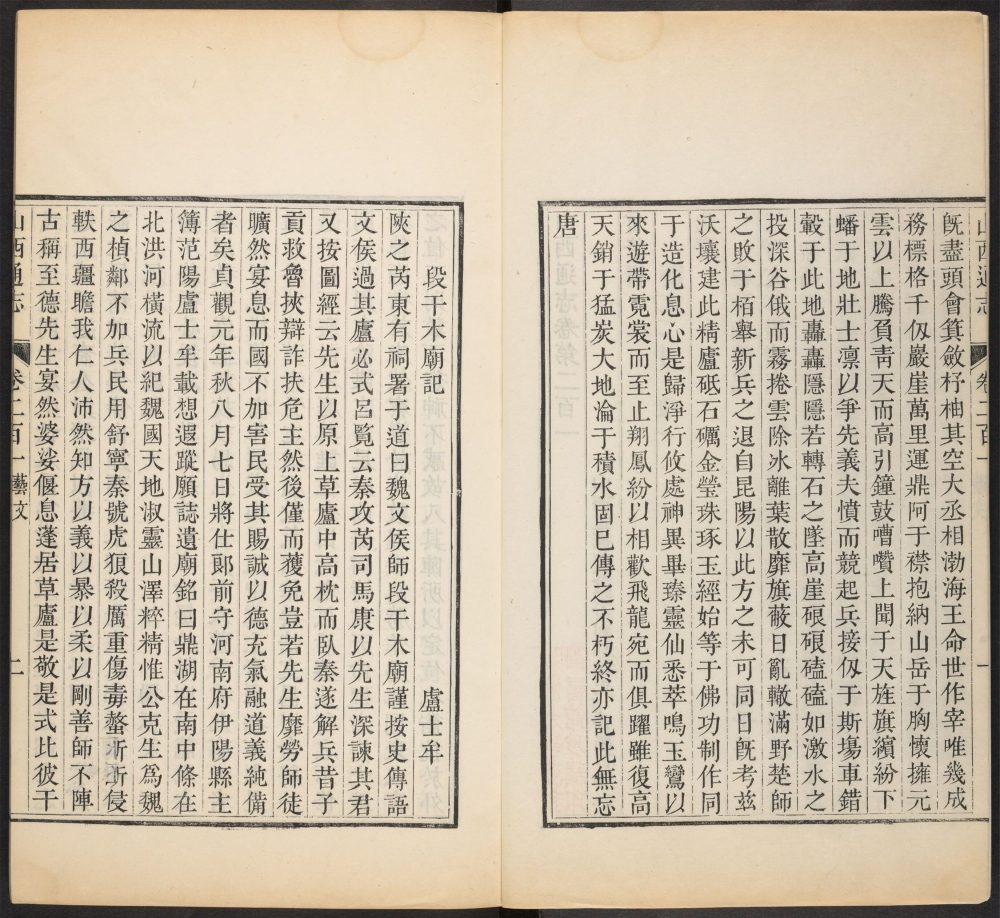 山西通志 卷二百一
既盡頭會箕斂杼柚其空大丞相渤海王命世作宰唯幾成
務標格千仭嚴崖萬里運鼎阿于襟抱納山岳于胸懷擁元
雲以上騰負靑天而高引鐘鼓嘈囋上聞于天旌旗繽紛下
蟠于地壯士凛以爭先義夫憤而競起兵接仭于斯場車錯
轂于此地轟轟隱隱若轉石之墜高崖硠硠磕磕如激水之
投深谷俄而霧捲雲除冰離葉散靡旗蔽日亂轍滿野楚師
之敗于栢舉新兵之退自昆陽以此方之未可同日旣考兹
沃壤建此精廬砥石礪金瑩珠琢玉經始等于佛功制作同
于造化息心是歸淨行攸處神異畢臻靈仙悉萃鳴玉鸞以
來遊帶霓裳而至止翔鳳紛以相歡飛龍宛而俱躍雖復高
天銷于猛炭大地淪于積水固巳傳之不朽終亦記此無忘
唐
段干木廟記 盧士牟
陜之芮東有祠署于道曰魏文侯師段干木廟謹按史傳語
文侯過其廬必式呂覧云秦攻芮司馬康以先生深諫其君
又按圖經云先生以原上草廬中高枕而臥秦遂解兵昔子
貢救魯挾辯詐扶危主然後僅而獲免豈若先生靡勞師徒
曠然宴息而國不加害民受其賜誠以德充氣融道義純備
者矣貞觀元年秋八月七日將仕郞前守河南府伊陽縣主
簿范陽盧士牟載想遐蹤願誌遺廟銘曰鼎湖在南中條在
北洪河橫流以紀魏國天地淑靈山澤粹精惟公克生爲魏
之楨鄰不加兵民用舒寧秦號虎狼殺厲重傷毒螫浙浙侵
軼西疆瞻我仁人沛然知方以義以暴以柔以剛善師不陣
古稱至德先生宴然婆娑偃息蓬居草廬是敬是式比彼干
山西通志 卷二百一 藝文 二